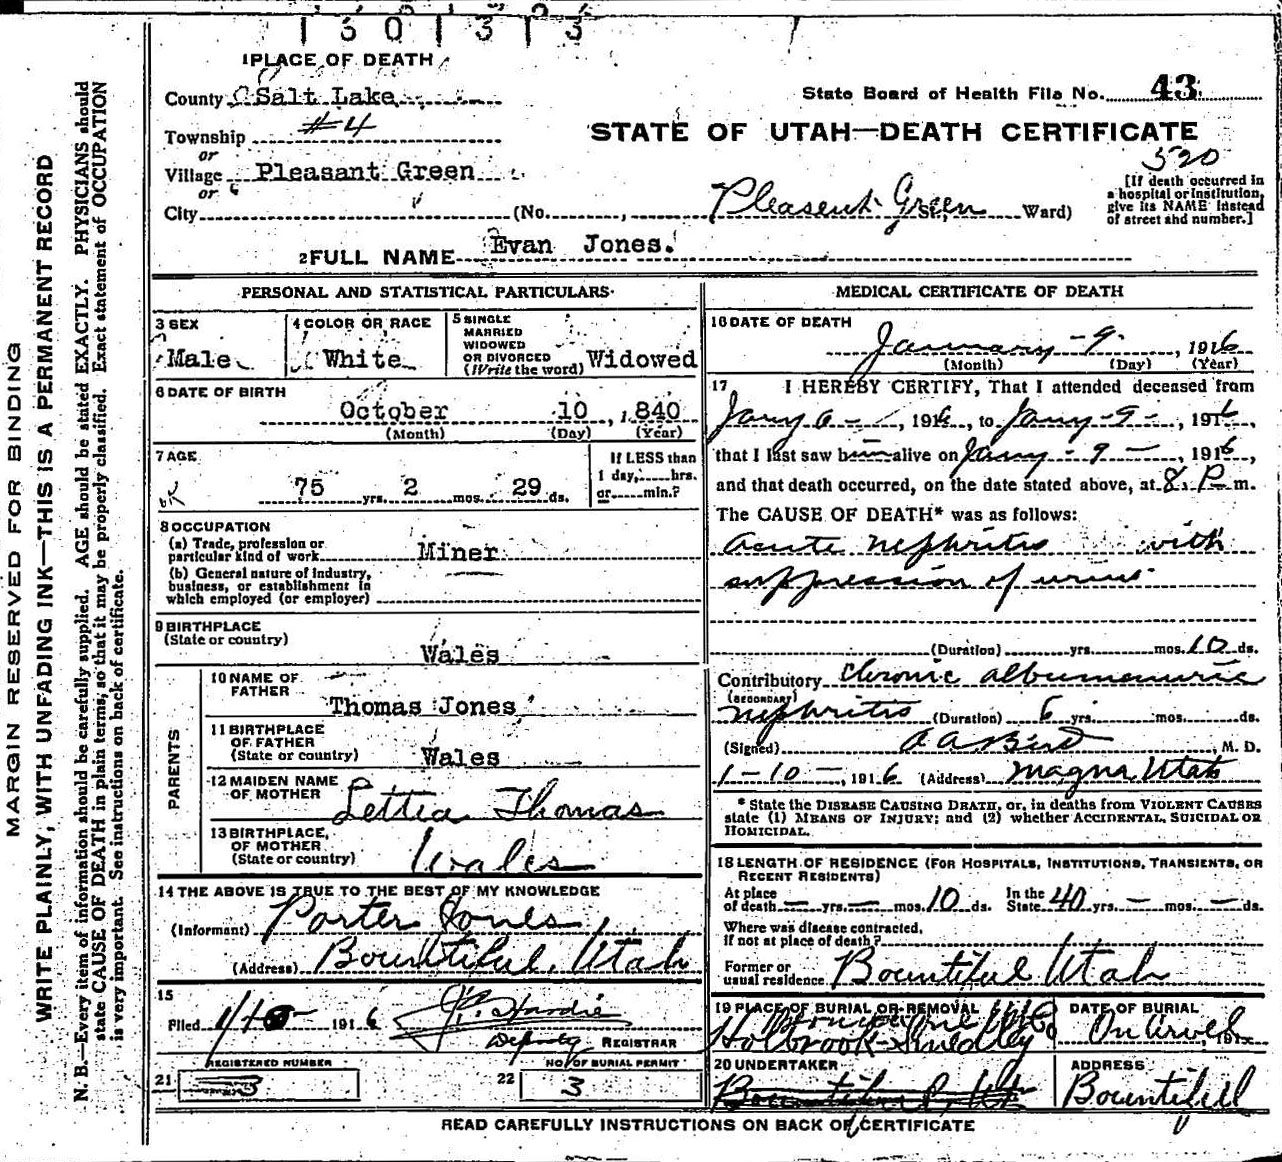 1 3 0 1 3 1 3 3
1 PLACE OF DEATH
County Salt Lake
State Board of Health File No. 43
Township #4
STATE OF UTAH—DEATH CERTIFICATE
or
520
Village Pleasant Green
or
City (No. , Pleasent Green St., Ward)
[If death occurred in a hospital or institution, give its NAME instead of street and number.]
2 FULL NAME Evan Jones.
PERSONAL AND STATISTICAL PARTICULARS
3 SEX
Male
4 COLOR OR RACE
White
5 SINGLE
MARRIED
WIDOWED
OR DIVORCED
(Write the word) Widowed
6 DATE OF BIRTH
October 10, 1840
(Month) (Day) (Year)
7 AGE
75 yrs. 2 mos. 29 ds.
If LESS than
1 day, hrs.
or min.?
8 OCCUPATION
(a) Trade, profession or
particular kind of work Miner
(b) General nature of industry,
business, or establishment in
which employed (or employer)
9 BIRTHPLACE
(State or country)
Wales
PARENTS
10 NAME OF
FATHER
Thomas Jones
11 BIRTHPLACE
OF FATHER
(State or country) Wales
12 MAIDEN NAME
OF MOTHER Lettia Thomas
13 BIRTHPLACE,
OF MOTHER
(State or country) Wales
14 THE ABOVE IS TRUE TO THE BEST OF MY KNOWLEDGE
(Informant) Porter Jones
(Address) Bountiful, Utah
15
Filed 1/10- 1916
Deputy REGISTRAR
REGISTERED NUMBER
21 3
NO. OF BURIAL PERMIT
22 3
MEDICAL CERTIFICATE OF DEATH
16 DATE OF DEATH
January - 9, 1916
(Month) (Day) (Year)
17 I HEREBY CERTIFY, That I attended deceased from
, 1916, to Jany - 9 -, 1916,
that I last saw him alive on Jany - 9 -, 1916,
and that death occurred, on the date stated above, at 8. P. m.
The CAUSE OF DEATH* was as follows:
acute nephritis with
suppression of urine
(Duration) yrs. mos. 10 ds.
Contributory chronic albumenuric
(SECONDARY)
nephritis (Duration) 6 yrs. mos. ds.
(Signed) , M. D.
1-10-, 1916 (Address) Magna Utah
* State the DISEASE CAUSING DEATH, or, in deaths from VIOLENT CAUSES
state (1) MEANS OF INJURY; and (2) whether ACCIDENTAL, SUICIDAL OR
HOMICIDAL.
18 LENGTH OF RESIDENCE (FOR HOSPITALS, INSTITUTIONS, TRANSIENTS, OR
RECENT RESIDENTS)
At place
of death — yrs. — mos. 10 ds. In the State 40 yrs. — mos. — ds.
Where was disease contracted,
if not at place of death?
Former or
usual residence Bountiful Utah
19 PLACE OF BURIAL OR REMOVAL
Holbrook-Smedley
DATE OF BURIAL
, 191
20 UNDERTAKER
ADDRESS
Bountiful
READ CAREFULLY INSTRUCTIONS ON BACK OF CERTIFICATE
MARGIN RESERVED FOR BINDING
WRITE PLAINLY, WITH UNFADING INK—THIS IS A PERMANENT RECORD
N. B.—Every item of information should be carefully supplied. AGE should be stated EXACTLY. PHYSICIANS should
state CAUSE OF DEATH in plain terms, so that it may be properly classified. Exact statement of OCCUPATION
is very important. See instructions on back of certificate.